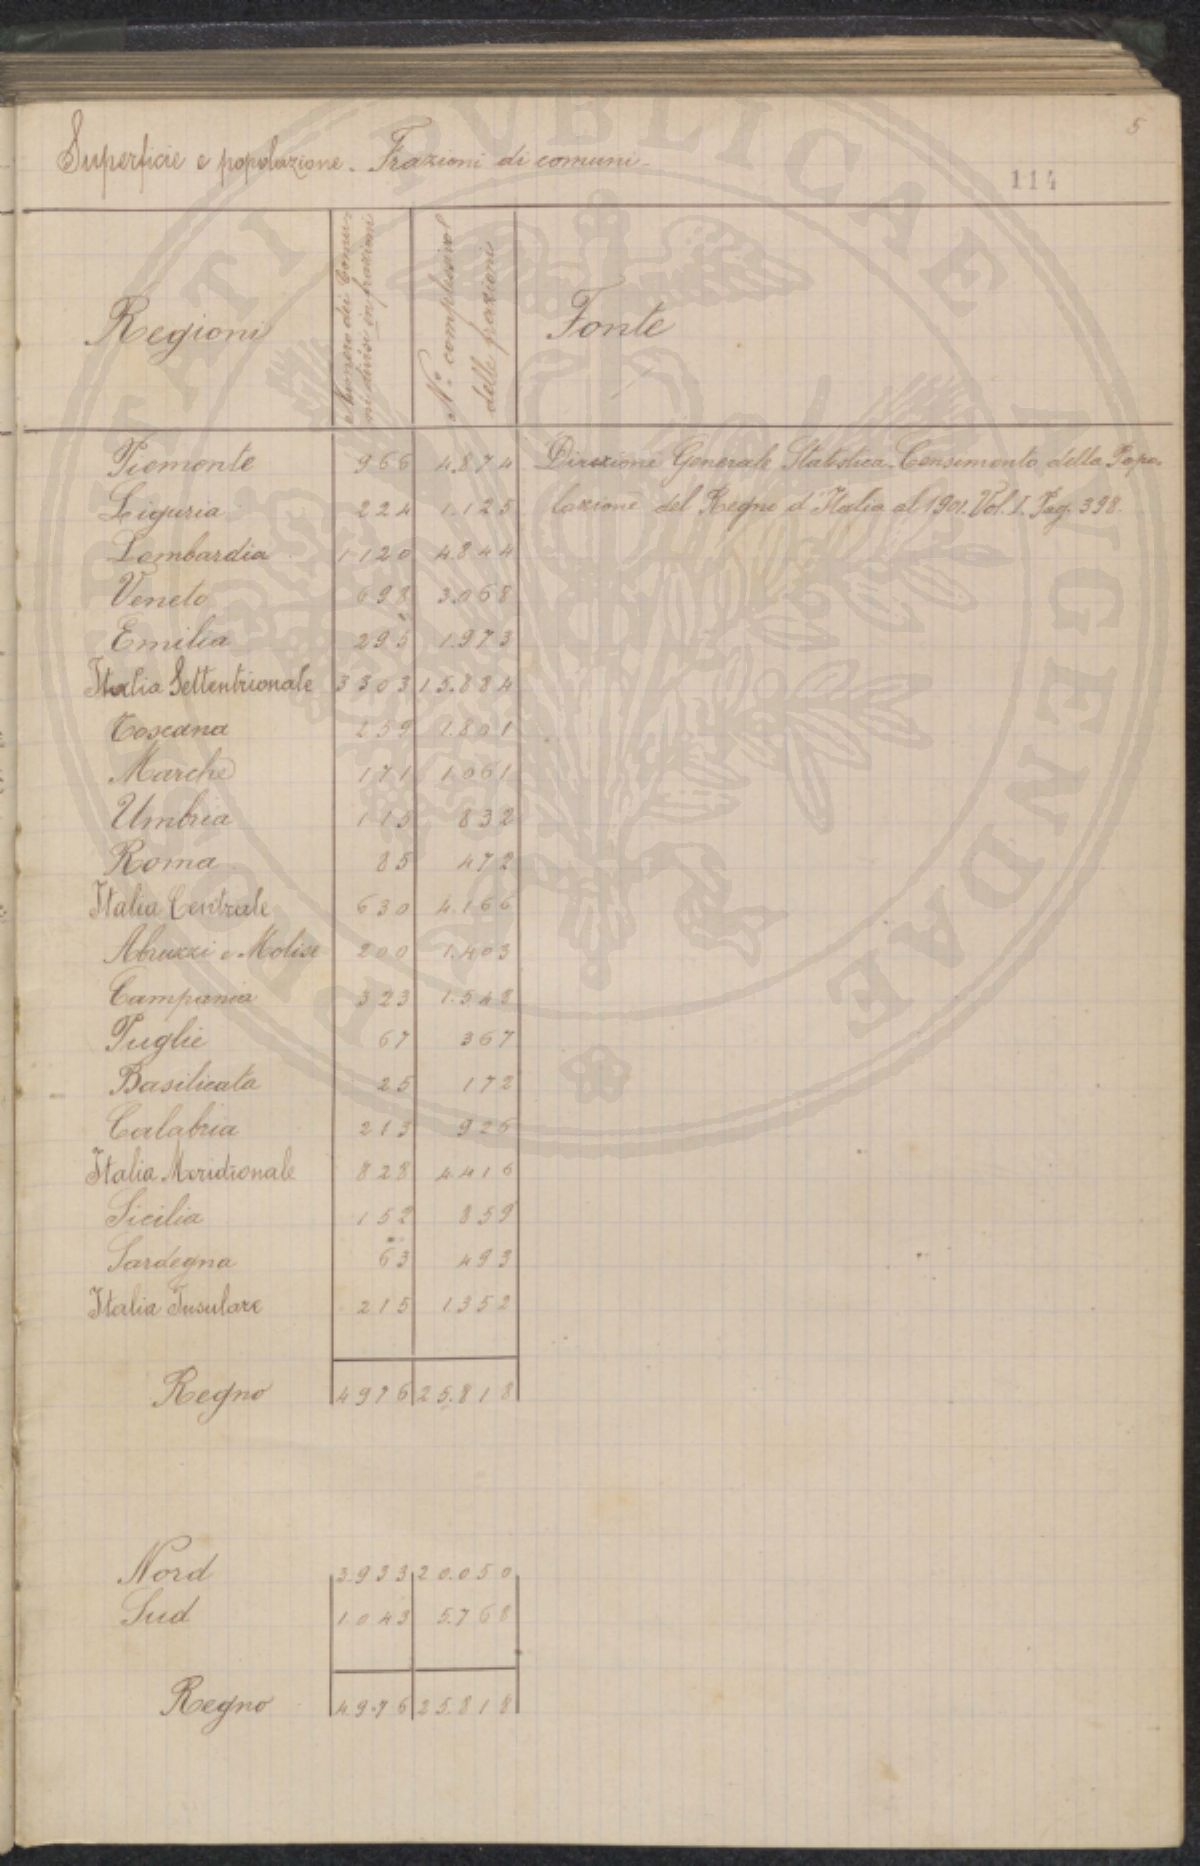 5
Superficie e popolazione. Frazioni di comuni.
114
Regioni | Numero dei Comu- | N.° complessivo | Fonte
ni divisi in frazioni | delle frazioni
Piemonte 966 4.874 Direzione Generale Statistica. Censimento della Popo-
Liguria 224 1.125 lazione del Regno d'Italia al 1901. Vol. I. Pag. 398.
Lombardia 1120 4.844
Veneto 698 3.068
Emilia 295 1.973
Italia Settentrionale 3303 15.884
Toscana 259 1.801
Marche 171 1.061
Umbria 115 832
Roma 85 472
Italia Centrale 630 4.166
Abruzzi e Molise 200 1.403
Campania 323 1.548
Puglie 67 367
Basilicata 25 172
Calabria 213 926
Italia Meridionale 828 4.416
Sicilia 152 859
Sardegna 63 493
Italia Insulare 215 1352
Regno 4976 25.818
Nord 3.933 20.050
Sud 1.043 5.768
Regno 4.976 25.818
PUBLICAE